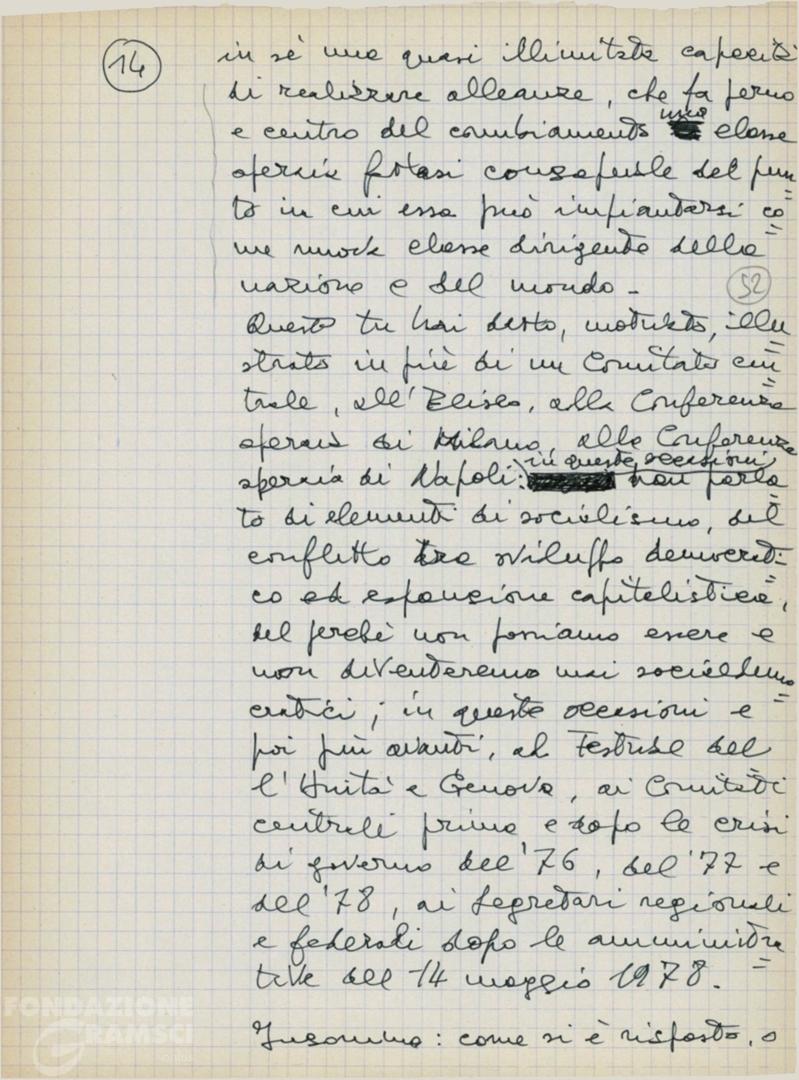 14
in sé una quasi illimitata capacità
di realizzare alleanze, che fa perno
e centro del cambiamento una classe
operaia fattasi consapevole del pun=
to in cui essa può impiantarsi co=
me nuova classe dirigente della
nazione e del mondo -
52
Questo tu hai detto, motivato, illu=
strato in più di un Comitato cen=
trale, all'Eliseo, alla Conferenza
operaia di Milano, alla Conferenza
operaia di Napoli: in queste occasioni hai parla=
to di elementi di socialismo, del
conflitto tra sviluppo democrati=
co ed espansione capitalistica,
del perché non possiamo essere e
non diventeremo mai socialdemo=
cratici; in queste occasioni e
poi più avanti, al Festival del=
l'Unità a Genova, ai Comitati
centrali prima e dopo le crisi
di governo del '76, del '77 e
del '78, ai Segretari regionali
e federali dopo le amministra=
tive del 14 maggio 1978.
Insomma: come si è risposto, o
FONDAZIONE
GRAMSCI